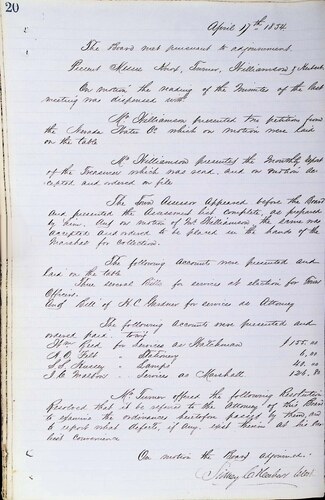 20
April 17th 1854
The Board met pursuant to adjournment.
Present Messrs Knox, Turner, Williamson &
On motion the reading of the Minutes of the last
meeting was dispensed with
Mr Williamson presented two petitions from
the Nevada Water Co which on motion were laid
on the table
Mr Williamson presented the Monthly Report
of the Treasurer which was read, and on motion ac-
cepted and ordered on file
The Town Assessor Appeared before the Board
and presented the Assessment list complete, as prepared
by him. And on motion of Mr Williamson the same was
accepted and ordered to be placed in the hands of the
Marshal for Collection.
The following accounts were presented and
laid on the table
Three several Bills for services at election for Town
Officers.
And Bill of H.C. Gardner for services as Attorney
The following accounts were presented and
ordered paid, towit
Reed for Services as Watchman $ 155.00
" Stationery 6.00
" Lamps 40.00
" Services as Marshall
Mr Turner offered the following Resolution
Resolved that it be referred to the Attorney of this Board
to examine the ordinances heretofore passed by them, and
to report what defects, if any, exist therein at his ear-
liest convenience
On motion the Board adjourned.